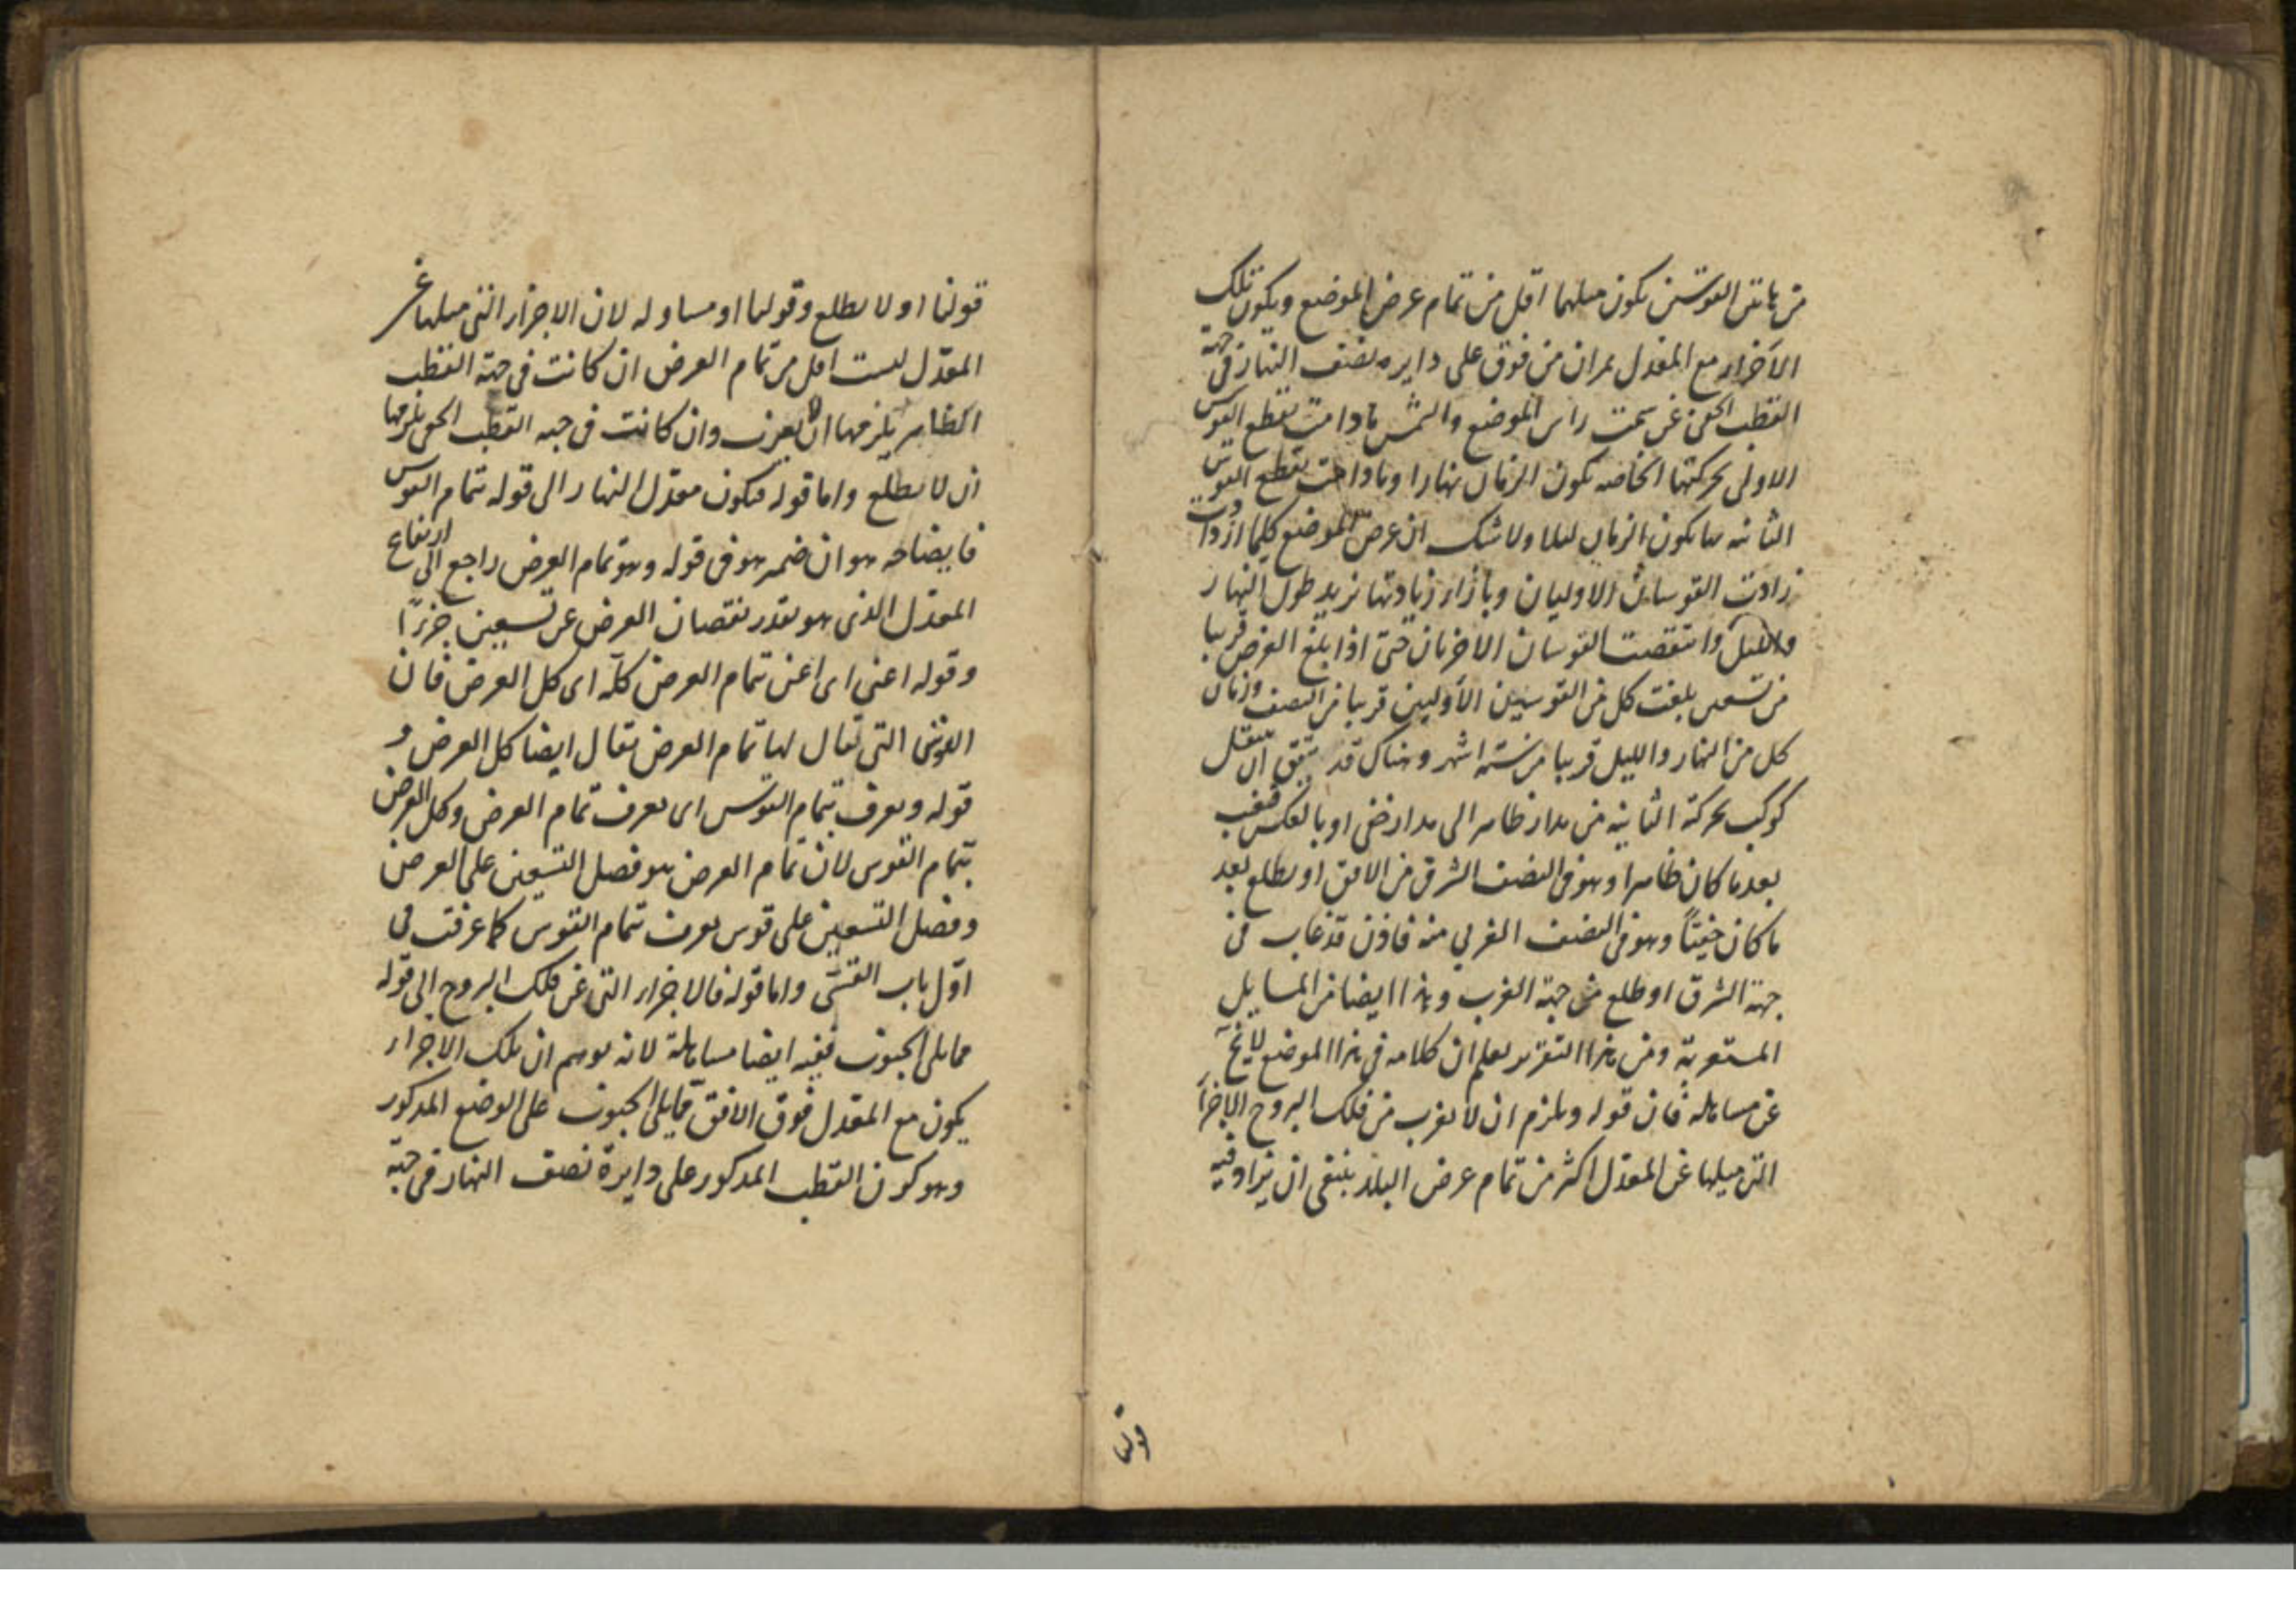 من هاتين القوسين يكون ميلهما اقل من تمام عرض الموضع ويكون تلك
الاجزاء مع المعدل يمران من فوق على دايره نصف النهار فى جهة
القطب الخفى عن سمت راس الموضع والشمس مادامت يقطع القوس
الاولى بحركتها الخاصه يكون الزمان نهارا ومادامت يقطع القوس
الثانيه بها يكون الزمان ليلا ولا شك ان عرض الموضع كلما ازدادت
زادت القوسان الاوليان وبازاء زيادتها يزيد طول النهار
والليل وانتقصت القوسان الاخريان حتى اذا بلغ العرض قريبا
من تسعين بلغت كل من القوسين الاوليين قريبا من النصف وزمان
كل من النهار والليل قريبا من ستة اشهر وهناك قد يتفق ان ينتقل
كوكب بحركة الثانية من مدار ظاهر الى مدار خفى او بالعكس فيغيب
بعد ما كان ظاهرا وهو فى النصف الشرقى من الافق او يطلع بعد
ما كان خفيّاً وهو فى النصف الغربى منه فاذن قد غاب فى
جهة الشرق او طلع من جهة الغرب وهذا ايضا من المسايل
المستغربة ومن هذا التقرير يعلم ان كلامه فى هذا الموضع لا يخ
عن مساهله فان قوله ويلزم ان لا يغرب من فلك البروج الاجزاء
التى ميلها عن المعدل اكثر من تمام عرض البلد ينبغى ان يزاد فيه
قولنا
قولنا او لا يطلع وقولنا او مساو له لان الاجزاء التى ميلها عن
المعدّل ليست اقل من تمام العرض ان كانت فى جهة القطب
الظاهر يلزمها ان لا يغرب وان كانت فى جهه القطب الخفى يلزمها
ان لا يطلع واما قوله فيكون معدّل النهار الى قوله تمام القوس
فايضاحه هو ان ضمير هو فى قوله وهو تمام العرض راجع الى ارتفاع
المعدّل الذى هو بقدر نقصان العرض عن تسعين جزءًا
وقوله اعنى اى اعنى تمام العرض كله اى كل العرض فان
القوس التى يقال لها تمام العرض يقال ايضا كل العرض و
قوله ويعرف بتمام القوس اى يعرف تمام العرض وكل العرض
بتمام القوس لان تمام العرض هو فصل التسعين على العرض
وفضل التسعين على قوس يعرف بتمام القوس كما عرفت فى
اوّل باب القسّى واما قوله فالاجزاء التى عن فلك البروج الى قوله
مما يلى الجنوب ففيه ايضا مساهلة لانه يوهم ان تلك الاجزاء
يكون مع المعدل فوق الافق مما يلى الجنوب على الوضع المذكور
وهو كون القطب المذكور على دايرة نصف النهار فى جهة